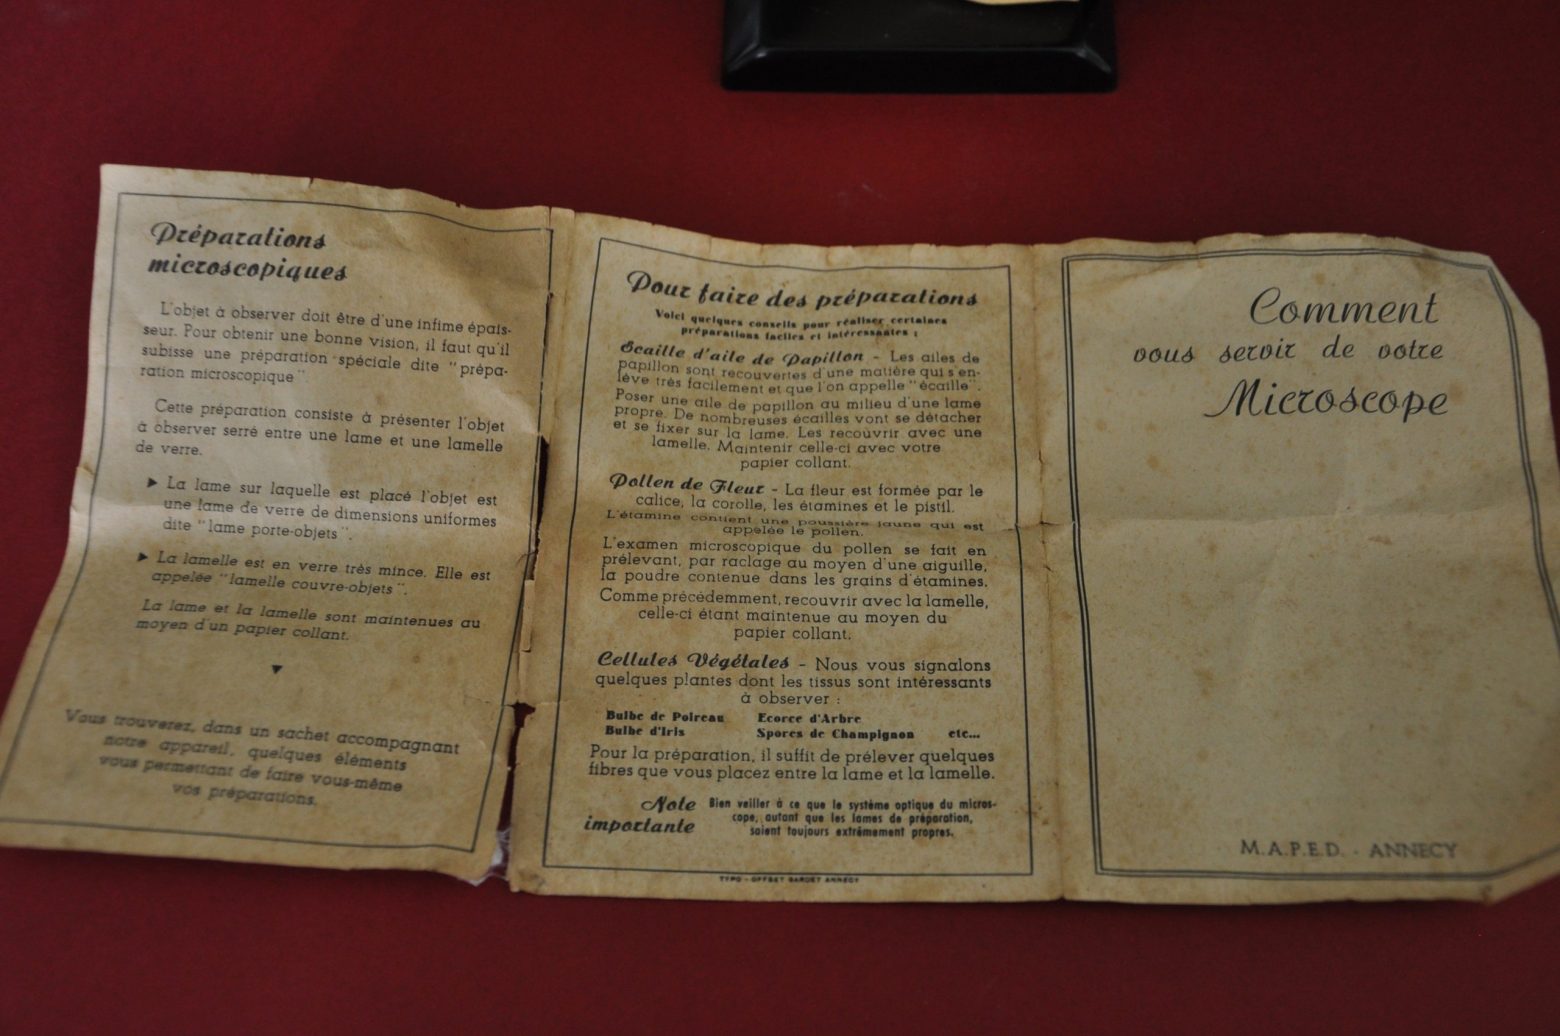 Préparations
microscopiques
L'objet à observer doit être d'une infime épais-
seur. Pour obtenir une bonne vision, il faut qu'il
subisse une préparation spéciale dite "prépa-
ration microscopique".
Cette préparation consiste à présenter l'objet
à observer serré entre une lame et une lamelle
de verre.
► La lame sur laquelle est placé l'objet est
une lame de verre de dimensions uniformes
dite "lame porte-objets".
► La lamelle est en verre très mince. Elle est
appelée "lamelle couvre-objets".
La lame et la lamelle sont maintenues au
moyen d'un papier collant.
▼
Vous trouverez, dans un sachet accompagnant
notre appareil, quelques éléments
vous permettant de faire vous-même
vos préparations.
Pour faire des préparations
Voici quelques conseils pour réaliser certaines
préparations faciles et intéressantes :
Écaille d'aile de Papillon - Les ailes de
papillon sont recouvertes d'une matière qui s'en-
lève très facilement et que l'on appelle "écaille".
Poser une aile de papillon au milieu d'une lame
propre. De nombreuses écailles vont se détacher
et se fixer sur la lame. Les recouvrir avec une
lamelle. Maintenir celle-ci avec votre
papier collant.
Pollen de Fleur - La fleur est formée par le
calice, la corolle, les étamines et le pistil.
L'étamine contient une poussière jaune qui est
appelée le pollen.
L'examen microscopique du pollen se fait en
prélevant, par raclage au moyen d'une aiguille,
la poudre contenue dans les grains d'étamines.
Comme précédemment, recouvrir avec la lamelle,
celle-ci étant maintenue au moyen du
papier collant.
Cellules Végétales - Nous vous signalons
quelques plantes dont les tissus sont intéressants
à observer :
Bulbe de Poireau Ecorce d'Arbre
Bulbe d'Iris Spores de Champignon etc...
Pour la préparation, il suffit de prélever quelques
fibres que vous placez entre la lame et la lamelle.
Note importante
Bien veiller à ce que le système optique du micros-
cope, autant que les lames de préparation,
soient toujours extrêmement propres.
TYPO - OFFSET GARDET ANNECY
Comment
vous servir de votre
Microscope
M.A.P.E.D. - ANNECY